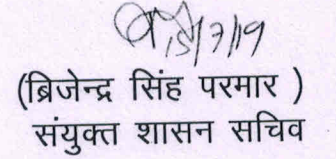 15/7/19
(ब्रिजेन्द्र सिंह परमार )
संयुक्त शासन सचिव